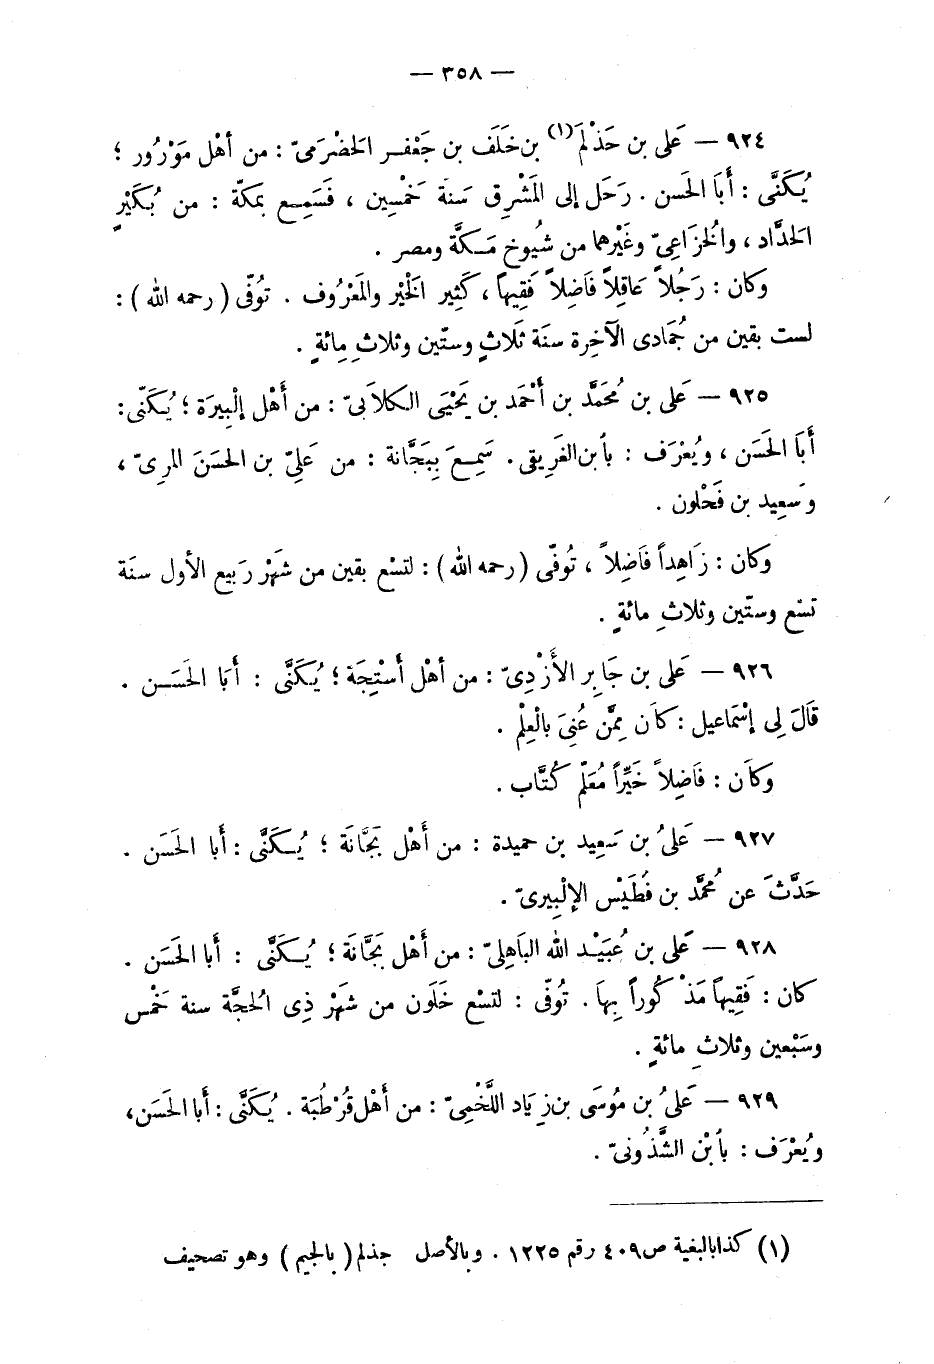 — ٣٥٨ —
٩٢٤ — عَلى بن حَذْلَم (١) بن خَلَف بن جَعْفر الحَضْرَمىّ : من أهْل مَوْرُور ؛
يُكَنَّى : أَبَا الحَسن . رَحَل إلى المَشْرِق سَنَة خَمْسِين ، فَسَمِع بمَكّة : من بُكَيْرٍ
الحَدَّاد ، والخُزَاعِىّ وغَيْرِهما من شيُوخ مَكَّة ومصر .
وكان : رَجُلاً عَاقِلاً فَاضِلاً فَقِيهاً ، كَثِير الخَيْر والمَعْرُوف . توُفّى ( رحمه الله ) :
لست بقين من جُمَادى الآخِرة سنَة ثلَاثٍ وستّين وثلاثِ مِائةٍ .
٩٢٥ — عَلى بن مُحَمَّد بن أَحْمَد بن يَحْيَى الكلاَبىّ : من أَهْل إلْبِيرَة ؛ يُكَنّى :
أَبَا الحَسَن ، ويُعْرَف : بأبن الغَرِيقى . سَمِعَ بِبَجَّانة : من عَلِىّ بن الحَسَنَ المرِىّ ،
وَسعِيد بن فَحْلون .
وكان : زَاهِداً فَاضِلاً ، تُوفّى ( رحمه الله ) : لتسْع بقين من شَهْر رَبيع الأول سنَة
تسْع وستّين وثلاثِ مائةٍ .
٩٢٦ — عَلى بن جَابِر الأَزْدِىّ : من أهْل أَسْتِجَة ؛ يُكَنَّى : أَبَا الحَسَن .
قَالَ لِى إسْمَاعيل : كاَن مِمَّن عُنِىَ بالْعِلْم .
وكاَن : فَاضِلاً خَيِّراً مُعَلّم كُتَّاب .
٩٢٧ — عَلىُ بن سَعِيد بن حميدة : من أَهْل بَجَّانَة ؛ يُكَنَّى : أَبا الحَسَن .
حَدَّثَ عن مُحمَّد بن فُطَيْس الإلْبِيرىّ .
٩٢٨ — عَلى بن عُبَيْد الله البَاهِلىّ : من أَهْل بَجَّانَة ؛ يُكَنَّى : أَبا الحَسَن .
كان : فَقِيهاً مَذْكُوراً بِهاَ . تُوُفّى : لتسْع خَلَون من شَهْر ذِى الحجَّة سنة خَمْس
وسَبْعين وثلاثِ مائةٍ .
٩٢٩ — عَلىُ بن مُوسَى بن زِيَاد اللَّخْمِىّ : من أَهْل قُرْطُبَة . يُكَنَّى : أَبا الحَسَن ،
ويُعْرَف : بأبْن الشَّذُونىّ .
(١) كذا بالبغية ص ٤٠٩ رقم ١٢٢٥ . وبالأصل جذلم ( بالجيم ) وهو تصحيف